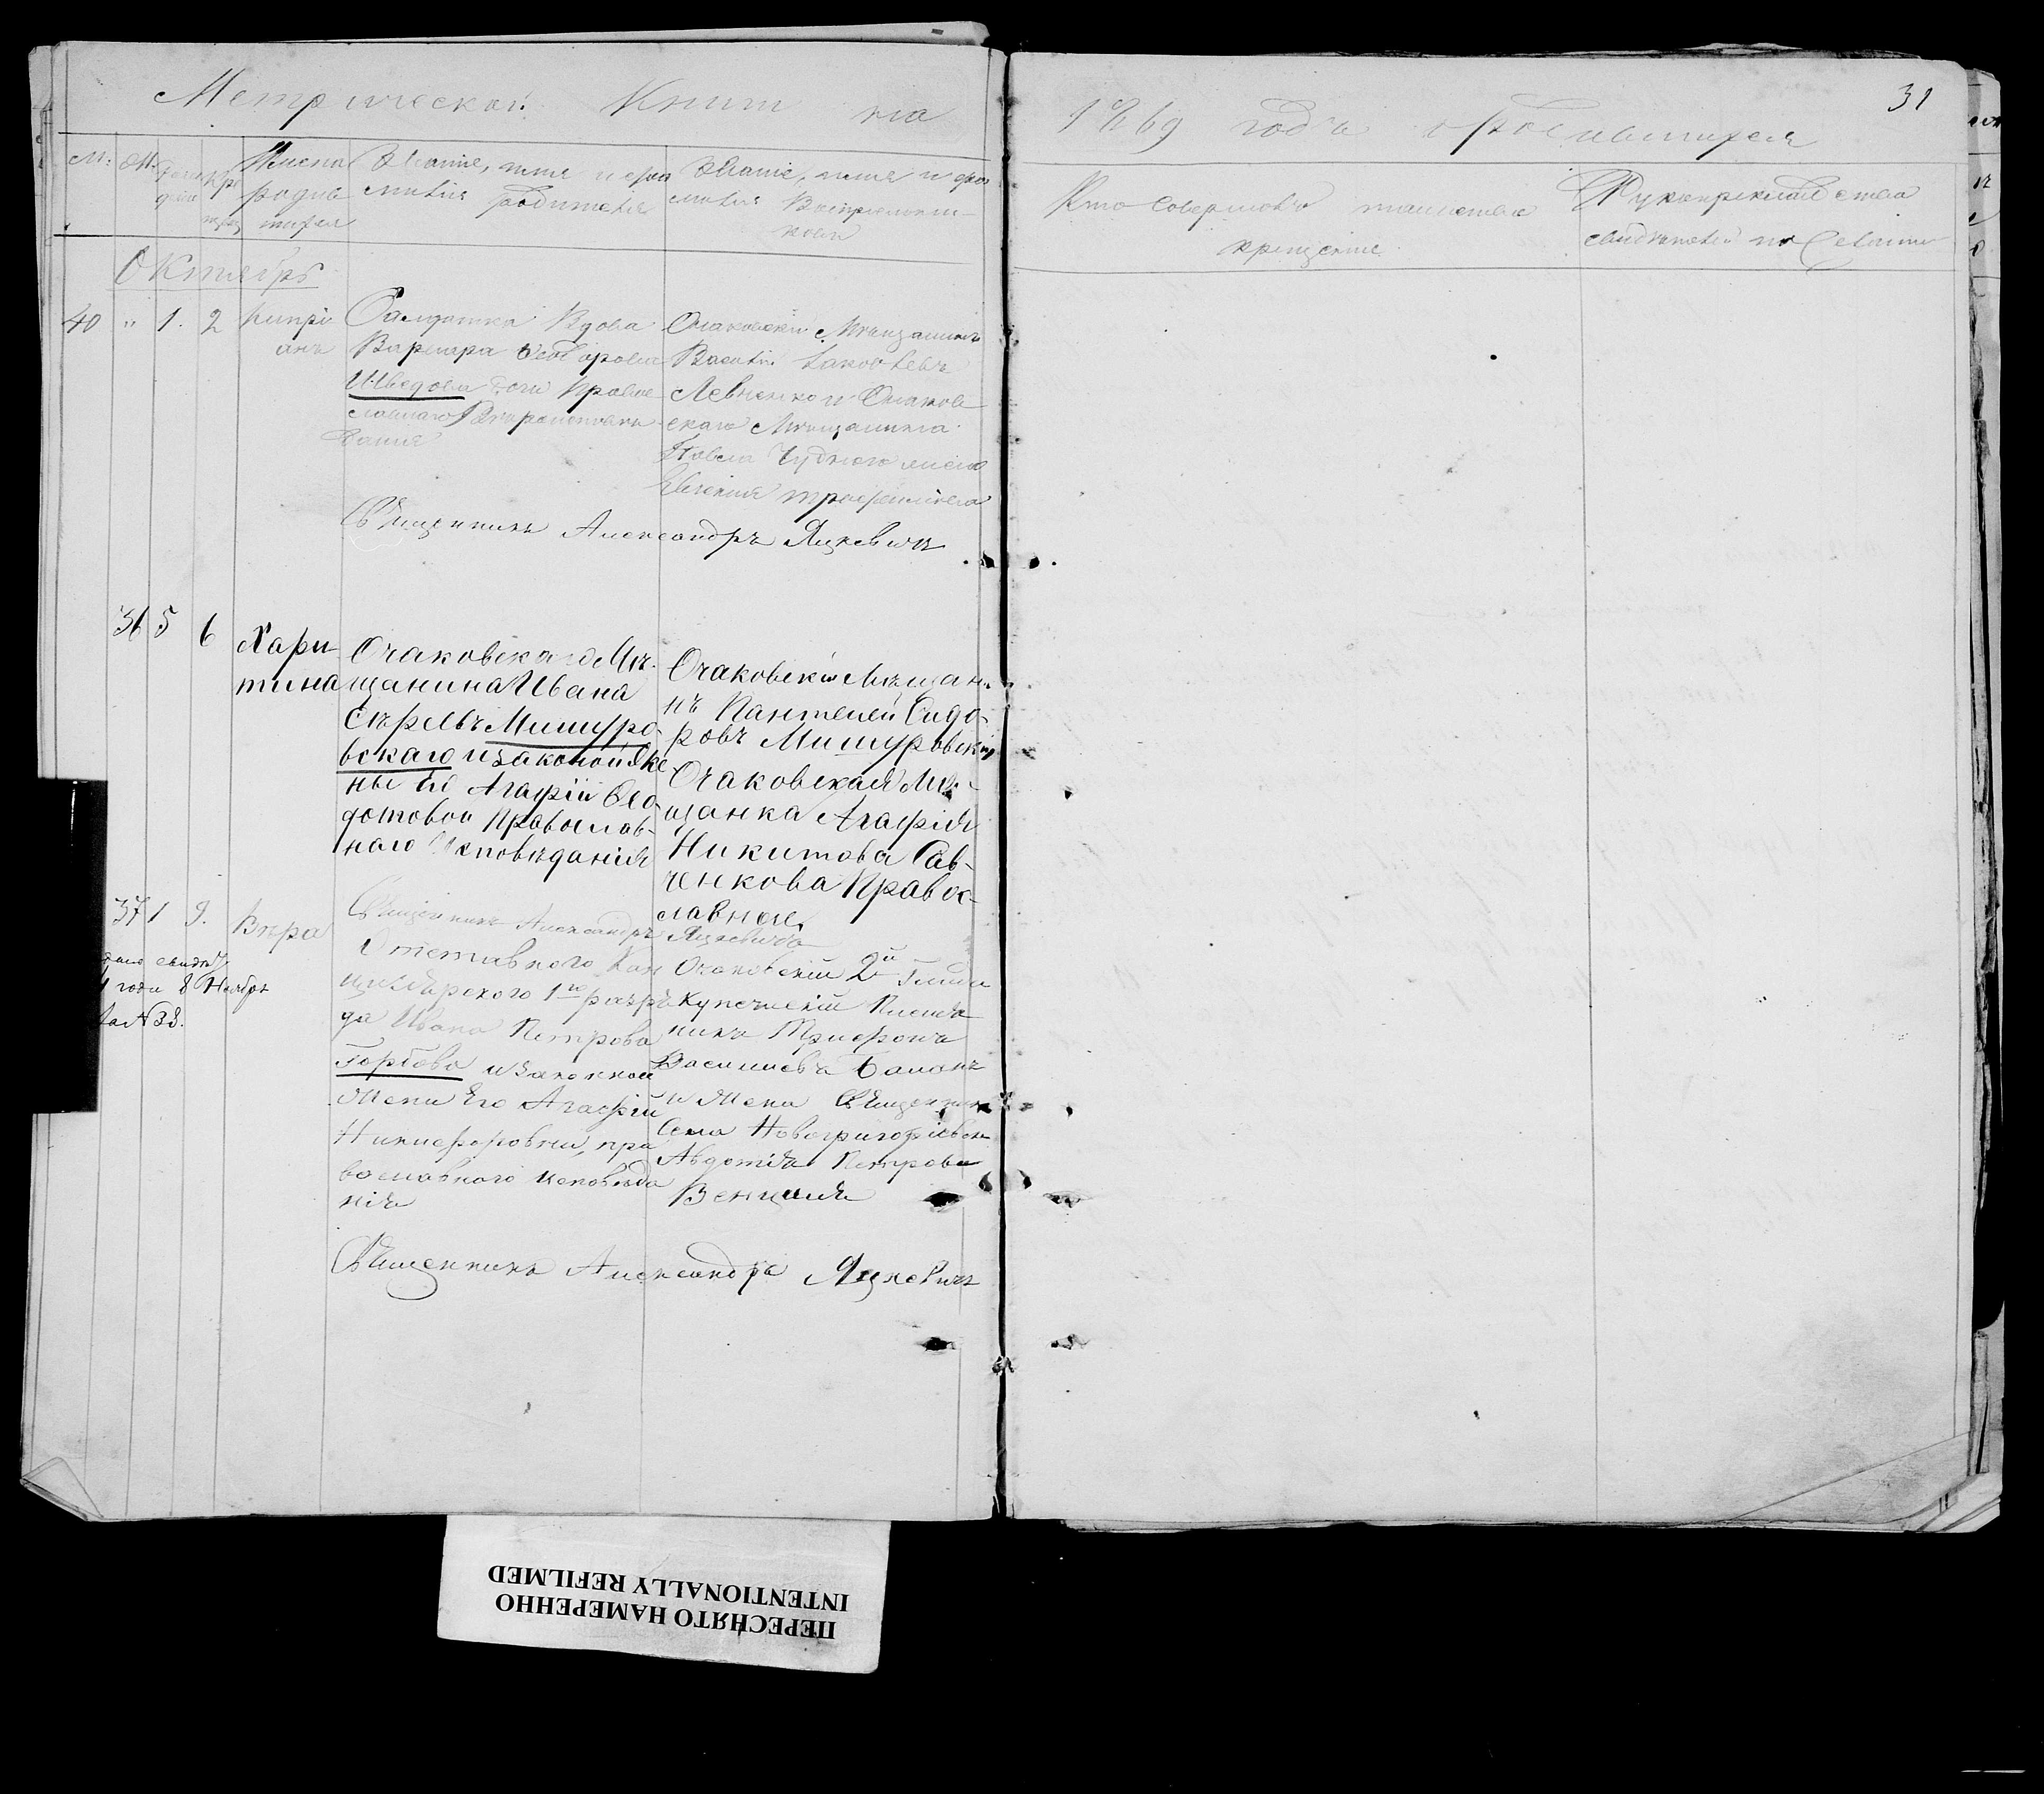 Метрической Книги на
1869 годъ о родившихся
31
М:
Ж.
крe
Имена родив
шихся
Званіе, имя и фа
милія родителей
Званіе, имя и фа
милія Воспріемни
ковъ
Кто совершалъ таинство
крещенія
Рукоприкладство
свидѣтелей по желанію
Октябрь
40 " 1. 2
Кипрі
анъ
Салдатка Вдова
Варвара
Шведова Православ
славнаго Вѣроисповѣ
данія
Очаковскій Мѣщанинъ
Василій Яковлевъ
Левченко и Очаков
скаго Мѣщанина
Павла Чуднаго
Евгенія
Священникъ Александръ Яцкевичъ
36 5 6
Хари
тина
Очаковскаго Мѣ-
щанина Ивана
Мишуро-
вскаго и законой Же
ны его Агафіи Ѳео-
дотовой Православ-
наго Исповѣданія
Очаковскій Мѣщани-
нъ Пантелей Сидо-
ровъ Мишуровскій
Очаковская Мѣ-
щанка Агафія
Никитова Сав-
ченкова Правос-
лавные,
Священникъ Александръ Яцкевичъ
37 1 9.
Вѣра
года 8 Ноября
за №38.
Отставного Кан
целярского 1го разря
да Ивана Петрова
Горбова и законной
Жены Его Агафіи
Никифоровны, пра
вославного исповѣда
нія
Очаковскій 2й Гильд
Купеческій Племян
никъ Трифонъ
Васильевъ Баланъ
и Жена Священника
Села Новогригорьевки
Авдотія Петрова
Венцеля
Священникъ Александръ Яцкевичъ
ПЕРЕСНЯТО НАМЕРЕННО
INTENTIONALLY REFILMED